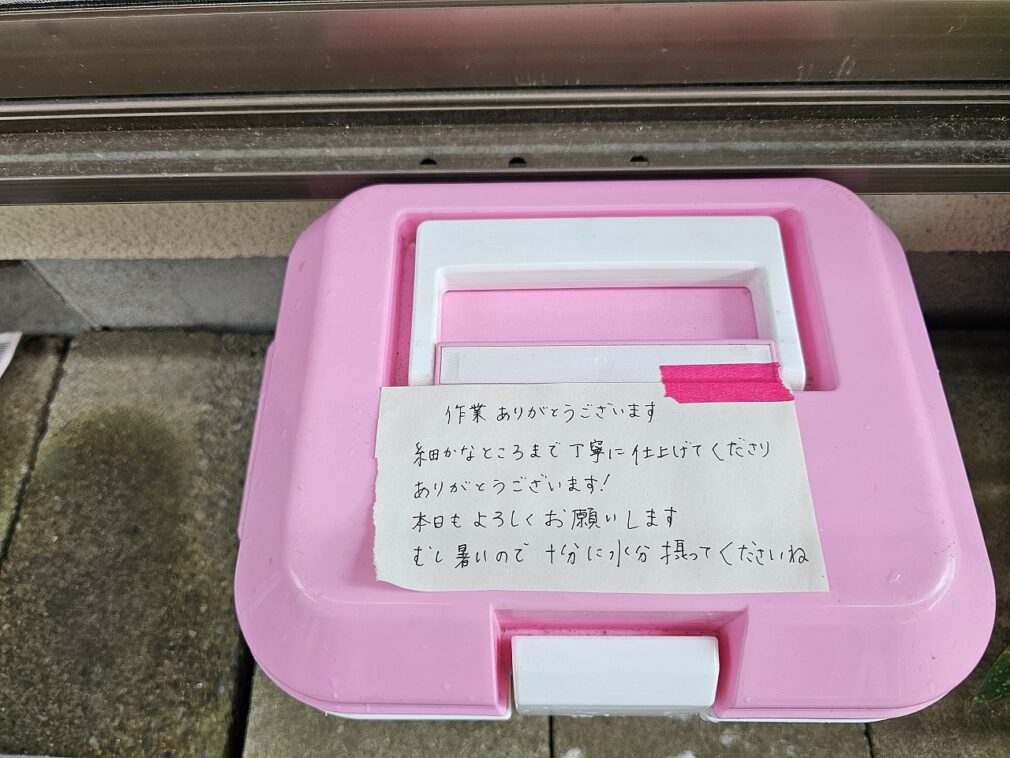 作業ありがとうございます
細かなところまで丁寧に仕上げてくださり
ありがとうございます!
本日もよろしくお願いします
むし暑いので十分に水分摂ってくださいね